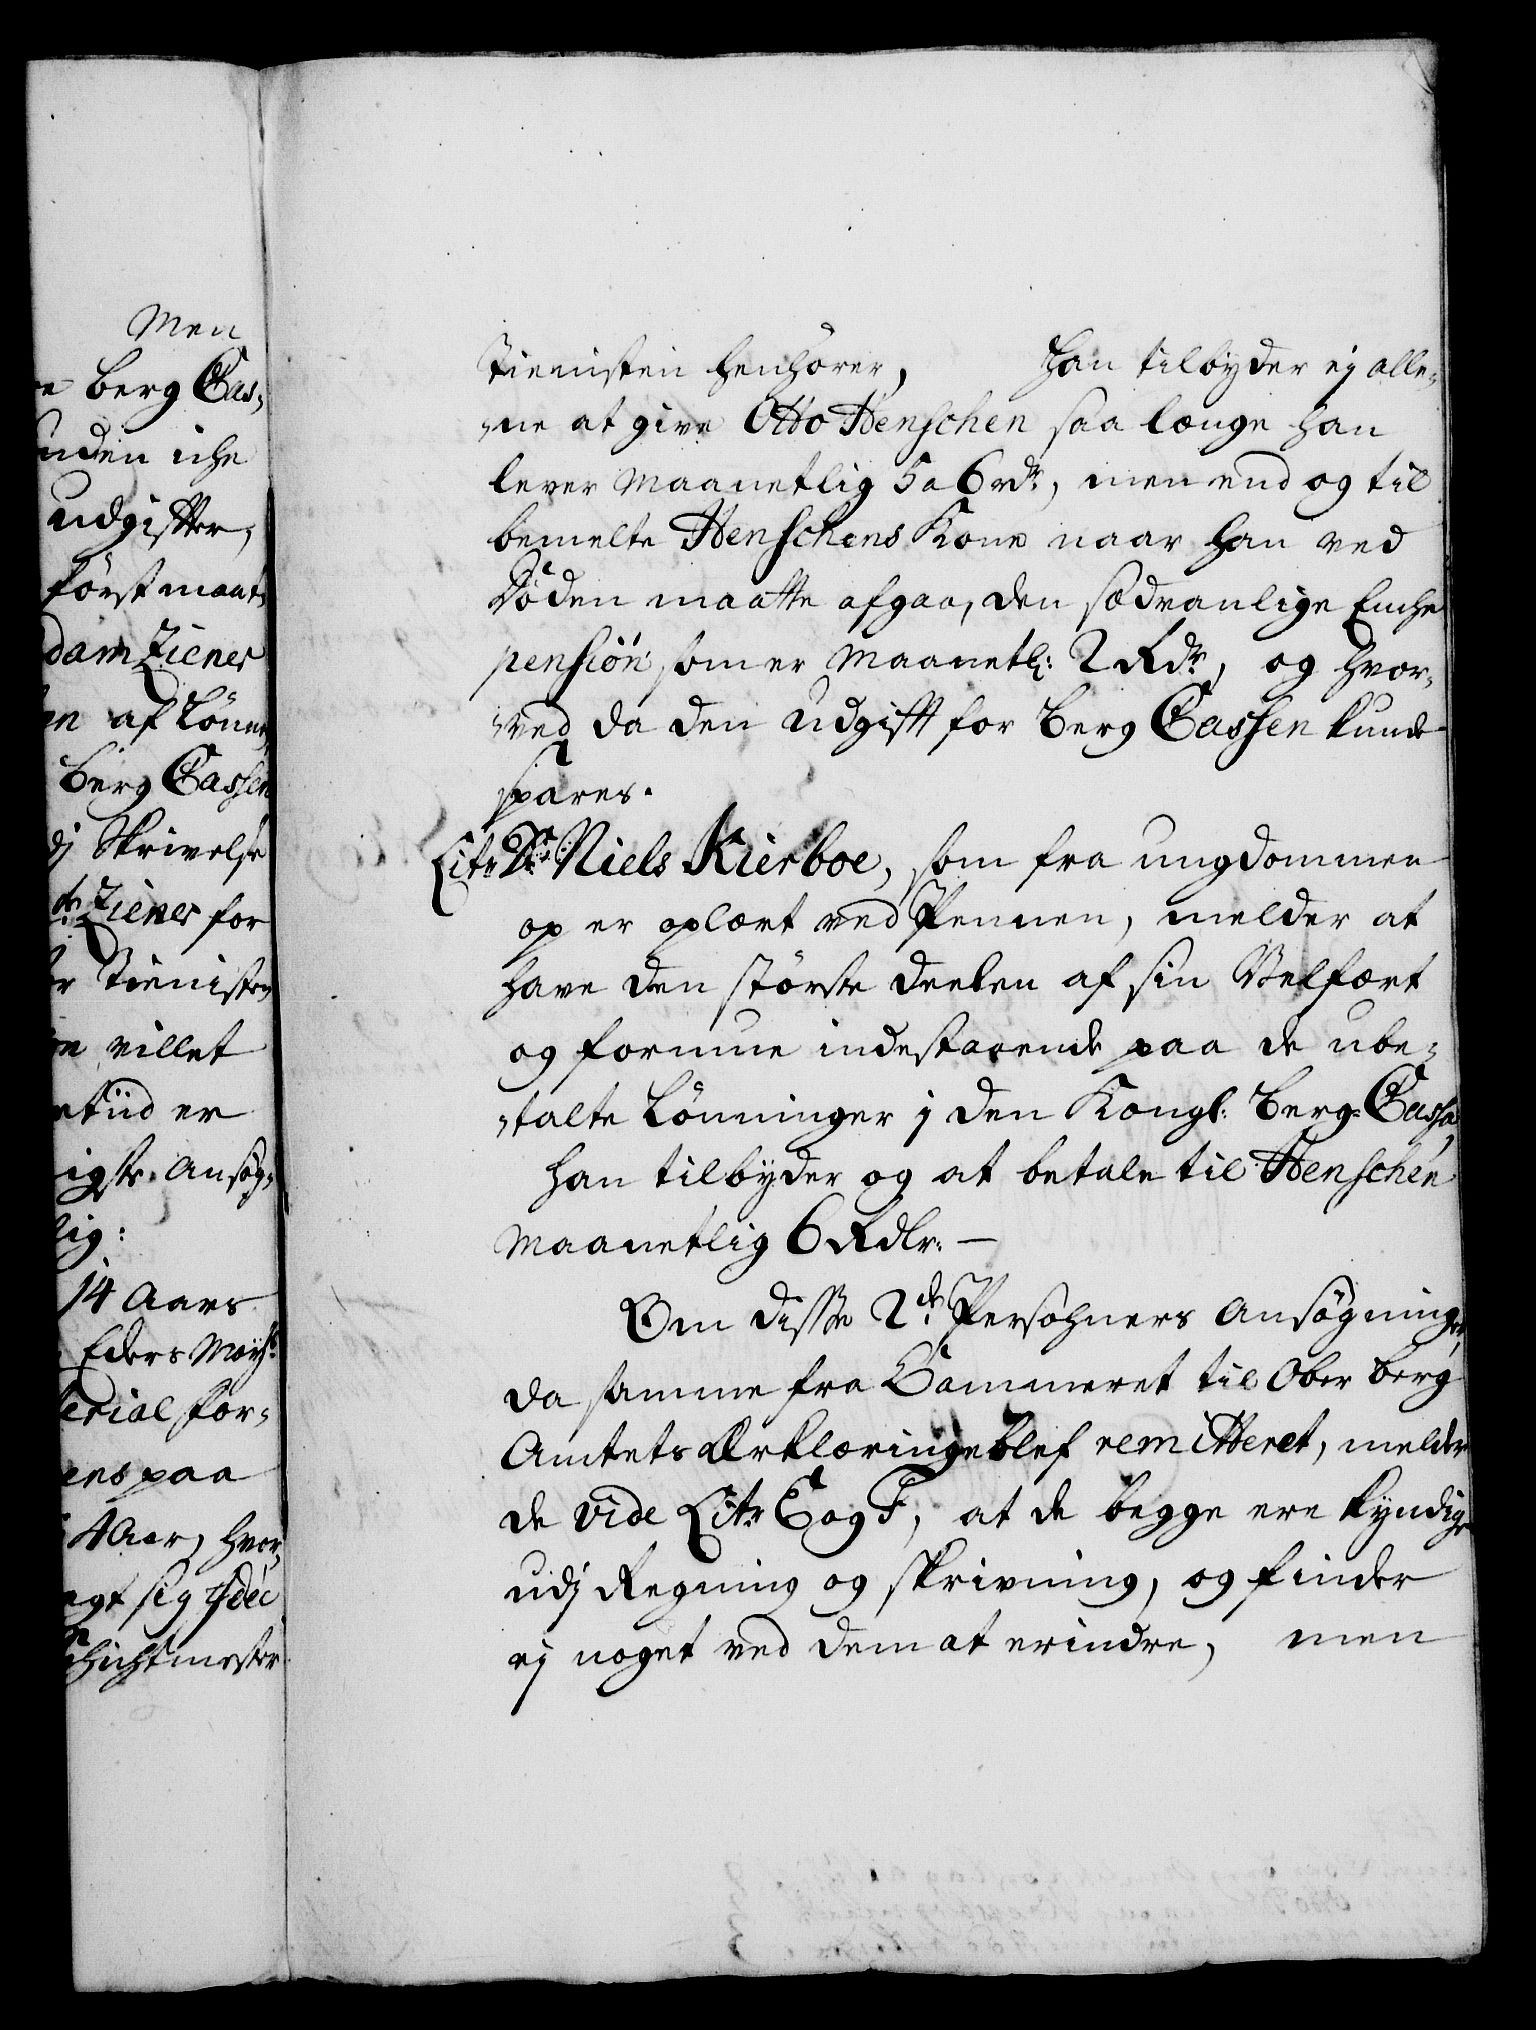 Men
berg Cas,
uden iche
udgifter,
først maat,
dam Ziener
af Lönne,
berg Cassen
dj Skrivelse
Ziener for
Tienisten
villet
tiid er
igste Ansög,
lig:
14 Aars
Eders Mayst:
erial for,
ens paa
4 Aar, hvor,
agt sig
Schichtmester
Tienisten henhörer, Han tilbyder ej alle,
,ne at give Otto Henschen saa længe han
lever Maanetlig 5 a 6 rdr, men end og til
bemelte Henschens Kone naar han ved
Döden maatte afgaa, den sædvanlige Enche
pension som er Maanetl: 2 Rdr, og hvor,
,ved da den udgift for berg Cassen kunde
spares.
Litr D: Niels Kierboe, som fra ungdommen
op er oplært ved Pennen, melder at
have den störste deelen af sin Velfært
og formue indestaaende paa de ube,
,talte Lönninger j den Kongl: berg Cassa,
han tilbyder og at betale til Henschen
Maanetlig 6 Rdlr: —
Om disse 2de Persohners Ansögninger,
da samme fra Cammeret til Ober berg
Amtets Erklæringe blef remitteret, melder
de vide Litr E og F, at de begge ere kyndige
udj Regning og skrivning, og finder
ej noget ved dem at erindre, men